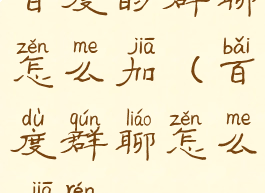 百度的群聊
zěn me jiā bǎi
怎么加（百
dù qún liáo zěn me
度群聊怎么
jiā rén